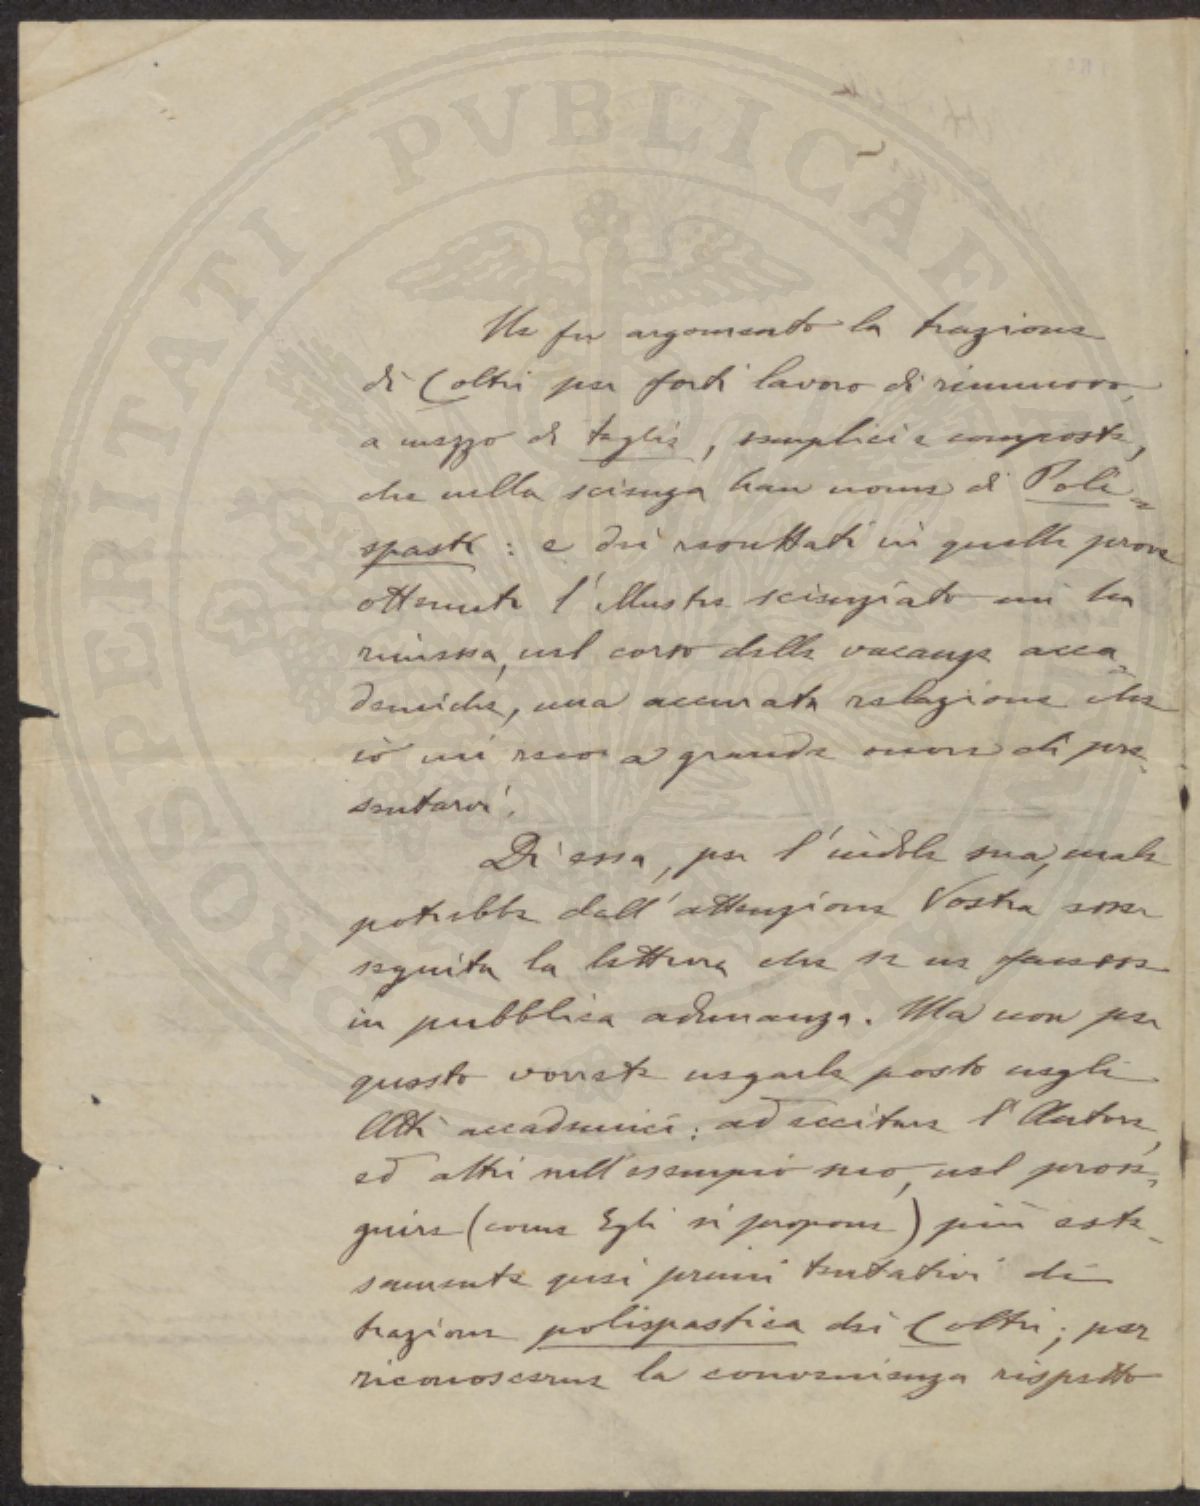 PROSPERITATI PVBLICAE
Ne fu argomento la trazione
di Coltri per forti lavoro di rinnuovo,
a mezzo di taglie, semplici e composte,
che nella scienza han nome di Poli=
spasti: e dei resultati in quelle prove
ottenute l'illustre scienziato mi ha
rimessa, nel corso delle vacanze acca=
demiche, una accurata relazione che
io mi reco a grande onore di pre=
sentarvi.
Di essa, per l'indole sua, male
potrebbe dall'attenzione Vostra esser
seguita la lettura che se ne facesse
in pubblica adunanza. Ma non per
questo vorrete negarle posto negli
Atti accademici: ad eccitare l'Autore,
ed altri nell'esempio suo, nel prose=
guire (come Egli si propone) più este=
samente quei primi tentativi di
trazione polispastica dei Coltri; per
riconoscerne la convenienza rispetto